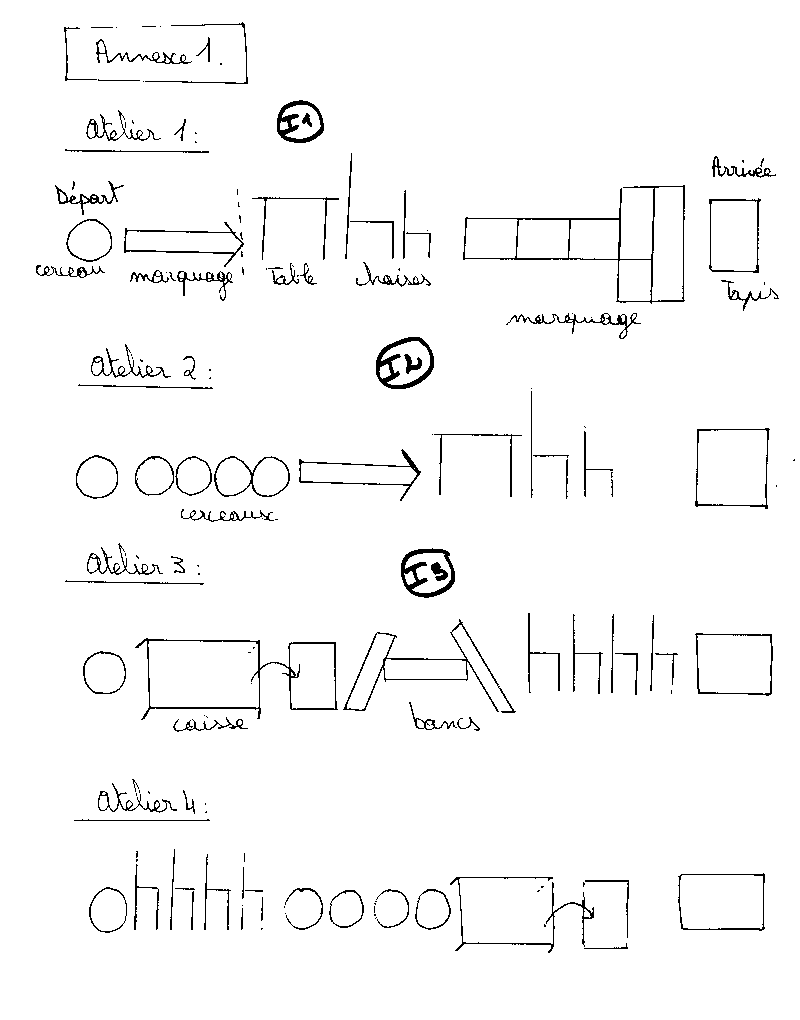 Annexe 1.
Atelier 1:
I1
Départ
Arrivée
cerceau
marquage
Table
chaises
marquage
Tapis
Atelier 2:
I2
cerceaux
Atelier 3:
I3
caisse
bancs
Atelier 4: